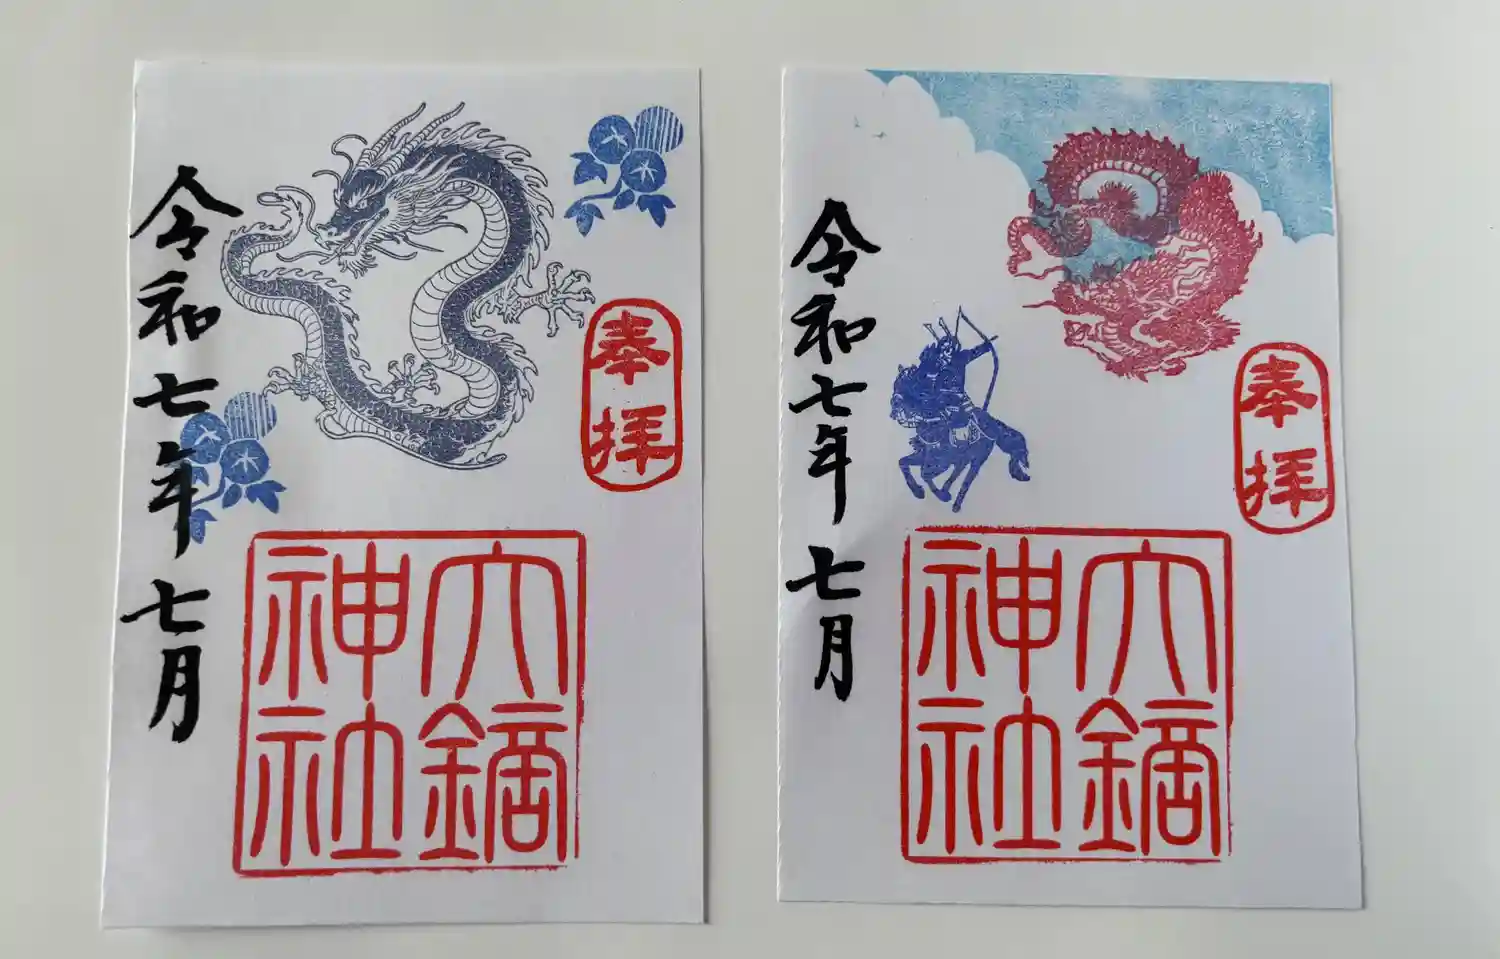 奉拝
大鏑
神社
令和七年七月
奉拝
大鏑
神社
令和七年七月